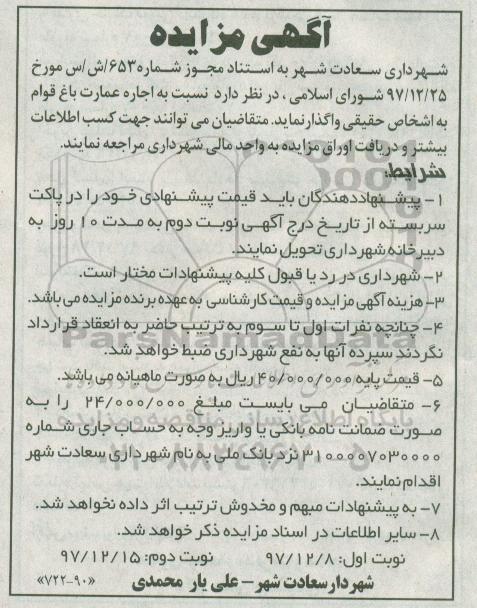 آگهی مزایده
شهرداری سعادت شهر به استناد مجوز شماره ۶۵۳/ش/س مورخ
۹۷/۱۲/۲۵ شورای اسلامی ، در نظر دارد نسبت به اجاره عمارت باغ قوام
به اشخاص حقیقی واگذار نماید. متقاضیان می توانند جهت کسب اطلاعات
بیشتر و دریافت اوراق مزایده به واحد مالی شهرداری مراجعه نمایند.
شرایط:
۱- پیشنهاددهندگان باید قیمت پیشنهادی خود را در پاکت
سربسته از تاریخ درج آگهی نوبت دوم به مدت ۱۰ روز به
دبیرخانه شهرداری تحویل نمایند.
۲- شهرداری در رد یا قبول کلیه پیشنهادات مختار است.
۳- هزینه آگهی مزایده و قیمت کارشناسی به عهده برنده مزایده می باشد.
۴- چنانچه نفرات اول تا سوم به ترتیب حاضر به انعقاد قرارداد
نگردند سپرده آنها به نفع شهرداری ضبط خواهد شد.
ParsNamadData
۵- قیمت پایه ۴۰/۰۰۰/۰۰۰ ریال به صورت ماهیانه می باشد.
۶- متقاضیان می بایست مبلغ ۲۴/۰۰۰/۰۰۰ را به
صورت ضمانت نامه بانکی یا واریز وجه به حساب جاری شماره
۳۱۰۰۰۰۷۰۳۰۰۰۰ نزد بانک ملی به نام شهرداری سعادت شهر
اقدام نمایند.
۷- به پیشنهادات مبهم و مخدوش ترتیب اثر داده نخواهد شد.
۸- سایر اطلاعات در اسناد مزایده ذکر خواهد شد.
نوبت اول: ۹۷/۱۲/۸ نوبت دوم: ۹۷/۱۲/۱۵
شهردار سعادت شهر- علی یار محمدی «۷۲۲-۹۰»